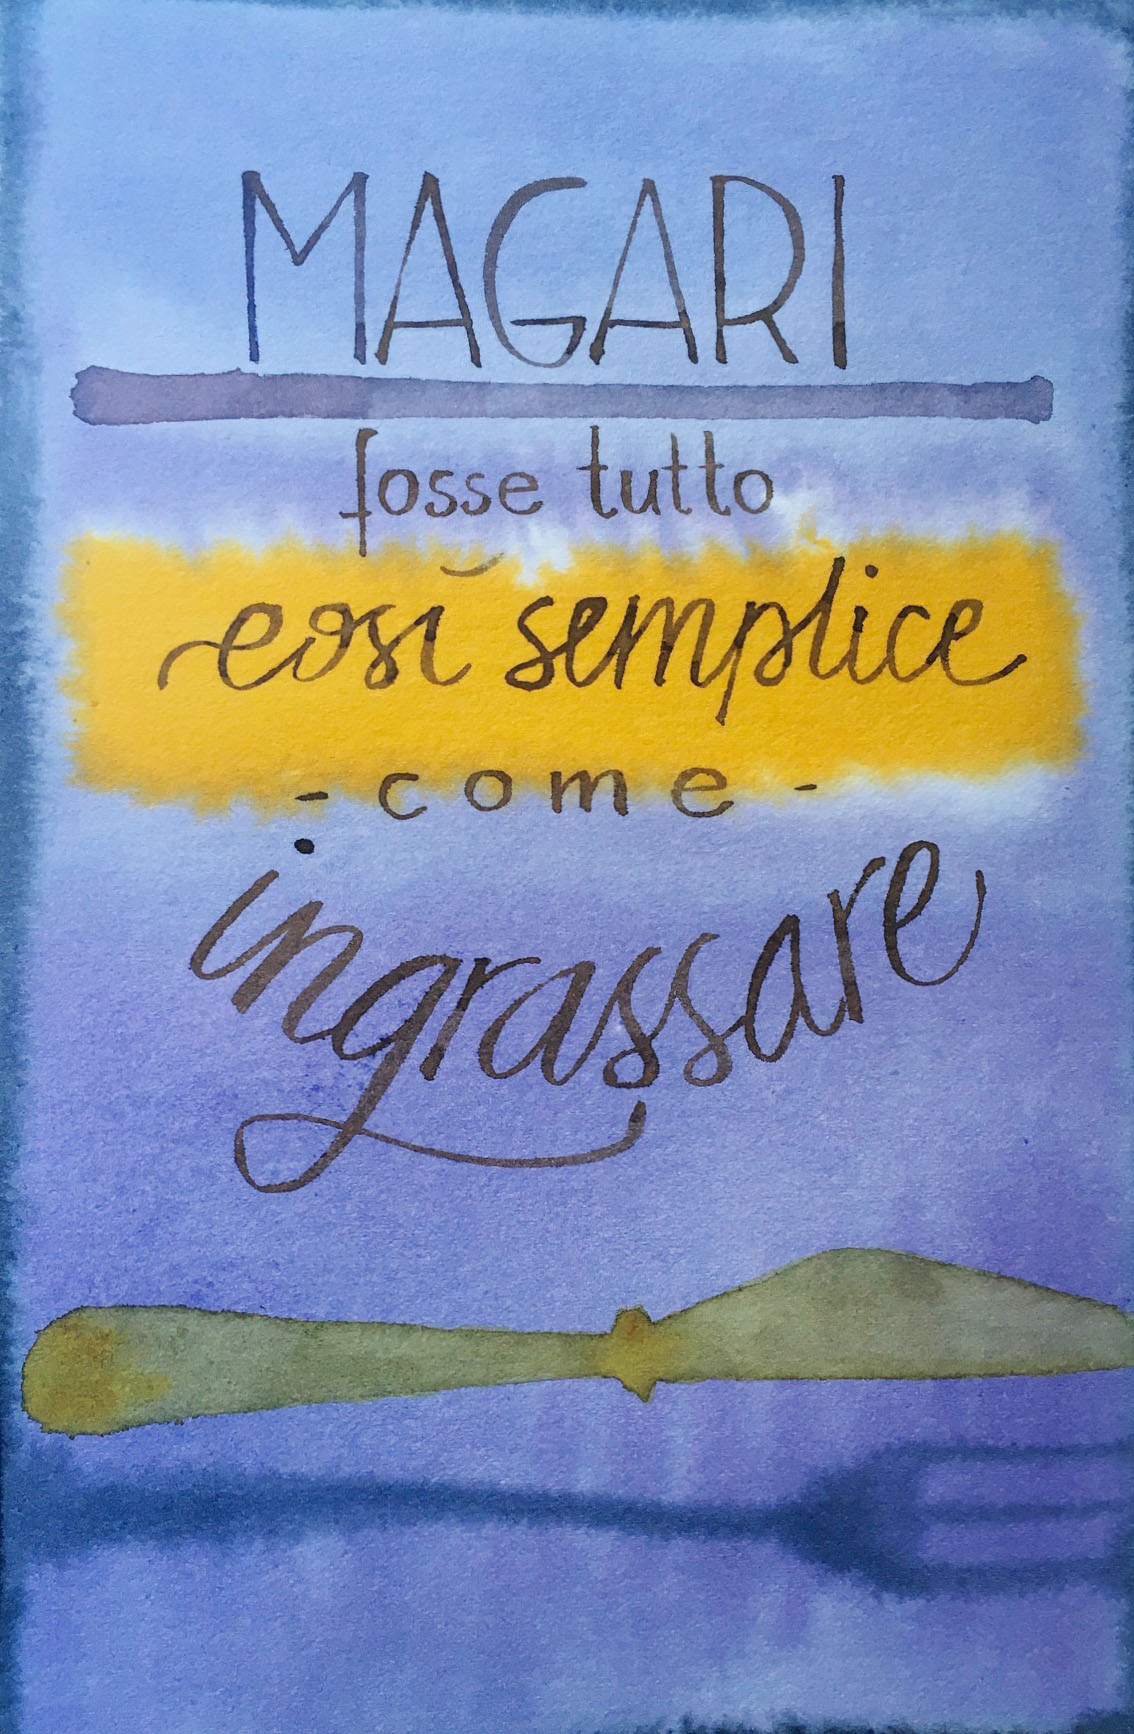 MAGARI
fosse tutto
così semplice
- come -
ingrassare